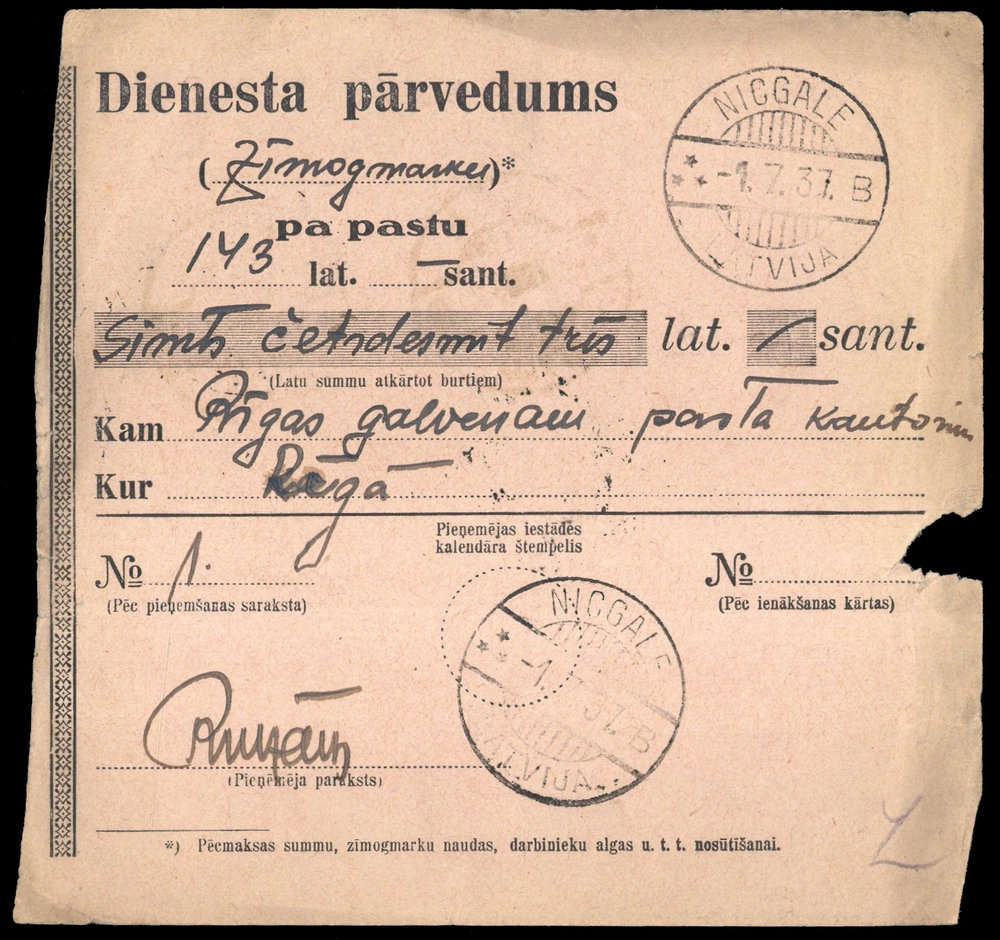 Dienesta pārvedums
NICGALE
-1. 7. 37. B
LATVIJA
(Zīmogmarku)*
pa pastu
143 lat. — sant.
Simts četrdesmit trīs lat. — sant.
(Latu summu atkārtot burtiem)
Kam Rīgas galvenam pasta kantorim
Kur Rīgā
Pieņemējas iestādes
kalendāra štempelis
№ 1. №
(Pēc pieņemšanas saraksta) (Pēc ienākšanas kārtas)
NICGALE
-1. 7. 37. B
LATVIJA
(Pieņēmēja paraksts)
*) Pēcmaksas summu, zīmogmarku naudas, darbinieku algas u. t. t. nosūtīšanai.